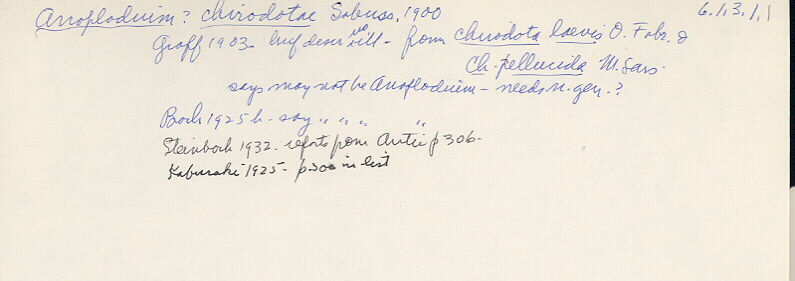 Anoplodium? chirodotae Sabuss. 1900 6.1.3.1.1
Graff 1903 - brief descr no ill - from Chirodota laevis O. Fabr. &
Ch. pellucida M. Sars.
says may not be Anoplodium - needs n. gen.?
Bock 1925 b - say " " " "
Steinbock 1932 - reports from Arctic p 306 -
Kaburaki 1925 - p 300 in list